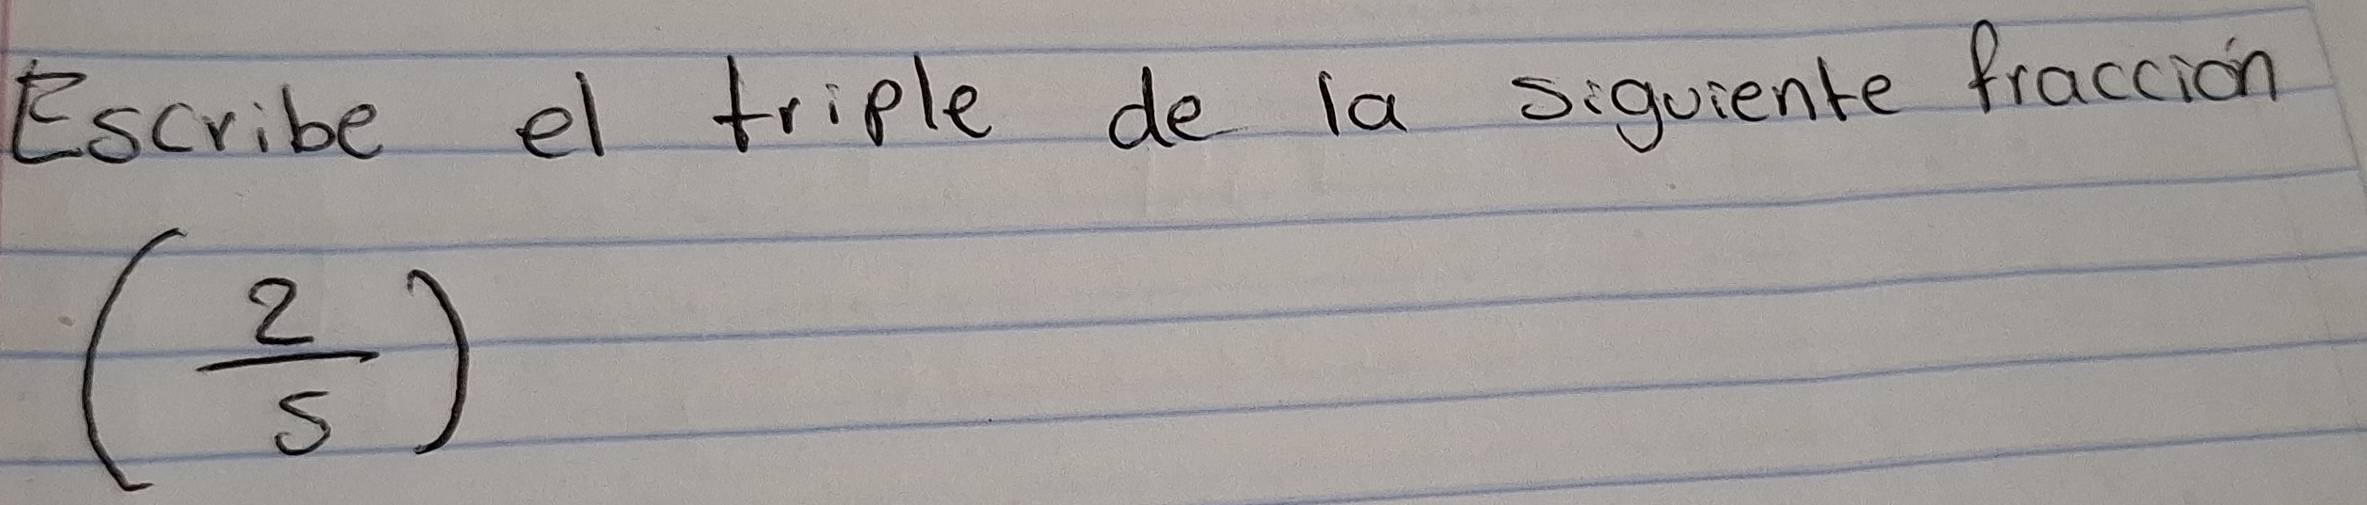 Escribe el triple de la siguiente fracción
(2/5)